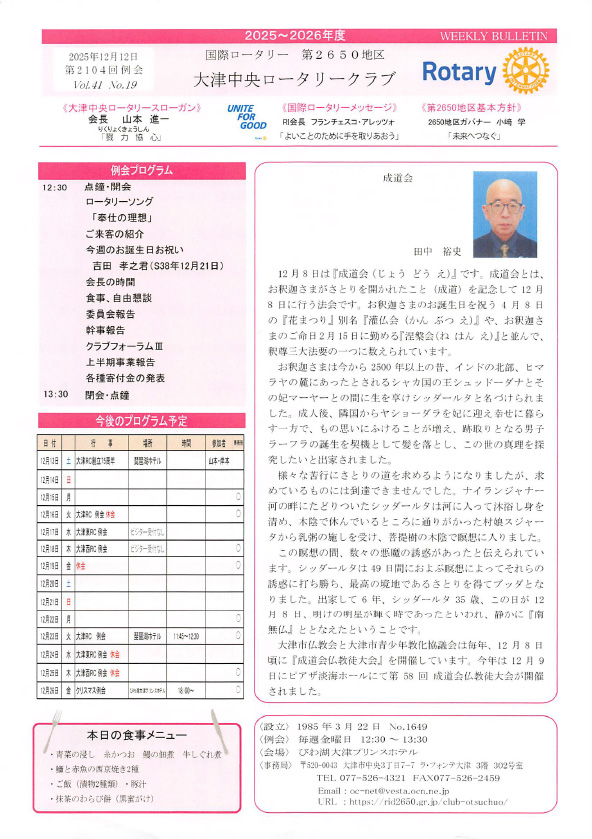 2025～2026年度
WEEKLY BULLETIN
2025年12月12日
第2104回例会
Vol.41 No.19
国際ロータリー 第2650地区
大津中央ロータリークラブ
Rotary
《大津中央ロータリースローガン》
会長 山本 進一
りくりょくきょうしん
「戮力協心」
UNITE
FOR
GOOD
《国際ロータリーメッセージ》
RI会長 フランチェスコ・アレッツォ
「よいことのために手を取りあおう」
《第2650地区基本方針》
2650地区ガバナー 小﨑 学
「未来へつなぐ」
例会プログラム
12:30 点鐘・開会
ロータリーソング
「奉仕の理想」
ご来客の紹介
今週のお誕生日お祝い
吉田 孝之君(S38年12月21日)
会長の時間
食事、自由懇談
委員会報告
幹事報告
クラブフォーラムⅢ
上半期事業報告
各種寄付金の発表
13:30 閉会・点鐘
今後のプログラム予定
日付 行事 場所 時間 参加者 事務局
12月13日 土 大津RC創立75周年 琵琶湖ホテル 山本・岸本
12月14日 日
12月15日 月 ○
12月16日 火 大津RC 例会 休会 ○
12月17日 水 大津東RC 例会 ビジター受付なし
12月18日 木 大津西RC 例会 ビジター受付なし ○
12月19日 金 休会 ○
12月20日 土
12月21日 日
12月22日 月 ○
12月23日 火 大津RC 例会 琵琶湖ホテル 11:45～12:30 ○
12月24日 水 大津東RC 例会 休会
12月25日 木 大津西RC 例会 休会 ○
12月26日 金 クリスマス例会 びわ湖大津プリンスホテル 18:00～ ○
本日の食事メニュー
・青菜の浸し 糸かつお 鰻の佃煮 牛しぐれ煮
・鰆と赤魚の西京焼き2種
・ご飯（漬物2種類）・豚汁
・抹茶のわらび餅（黒蜜がけ）
成道会
田中 裕史
12月8日は『成道会（じょう どう え）』です。成道会とは、
お釈迦さまがさとりを開かれたこと（成道）を記念して12月
8日に行う法会です。お釈迦さまのお誕生日を祝う4月8日
の『花まつり』別名『灌仏会（かん ぶつ え）』や、お釈迦さ
まのご命日2月15日に勤める『涅槃会(ね はん え)』と並んで、
釈尊三大法要の一つに数えられています。
お釈迦さまは今から2500年以上の昔、インドの北部、ヒマ
ラヤの麓にあったとされるシャカ国の王シュッドーダナとそ
の妃マーヤーとの間に生を享けシッダールタと名づけられま
した。成人後、隣国からヤショーダラを妃に迎え幸せに暮ら
す一方で、もの思いにふけることが増え、跡取りとなる男子
ラーフラの誕生を契機として髪を落とし、この世の真理を探
究したいと出家されました。
様々な苦行にさとりの道を求めるようになりましたが、求
めているものには到達できませんでした。ナイランジャナー
河の畔にたどりついたシッダールタは河に入って沐浴し身を
清め、木陰で休んでいるところに通りがかった村娘スジャー
タから乳粥の施しを受け、菩提樹の木陰で瞑想に入りました。
この瞑想の間、数々の悪魔の誘惑があったと伝えられてい
ます。シッダールタは49日間におよぶ瞑想によってそれらの
誘惑に打ち勝ち、最高の境地であるさとりを得てブッダとな
りました。出家して6年、シッダールタ35歳、この日が12
月8日、明けの明星が輝く時であったといわれ、静かに『南
無仏』ととなえたということです。
大津市仏教会と大津市青少年教化協議会は毎年、12月8日
頃に『成道会仏教徒大会』を開催しています。今年は12月9
日にピアザ淡海ホールにて第58回 成道会仏教徒大会が開催
されました。
〈設立〉 1985年3月22日 No.1649
〈例会〉 毎週金曜日 12:30～13:30
〈会場〉 びわ湖大津プリンスホテル
〈事務局〉 〒520-0043 大津市中央3丁目7-7 ラ・フォンテ大津 3階 302号室
TEL 077-526-4321 FAX077-526-2459
Email : oc-net@vesta.ocn.ne.jp
URL : https://rid2650.gr.jp/club-otsuchuo/